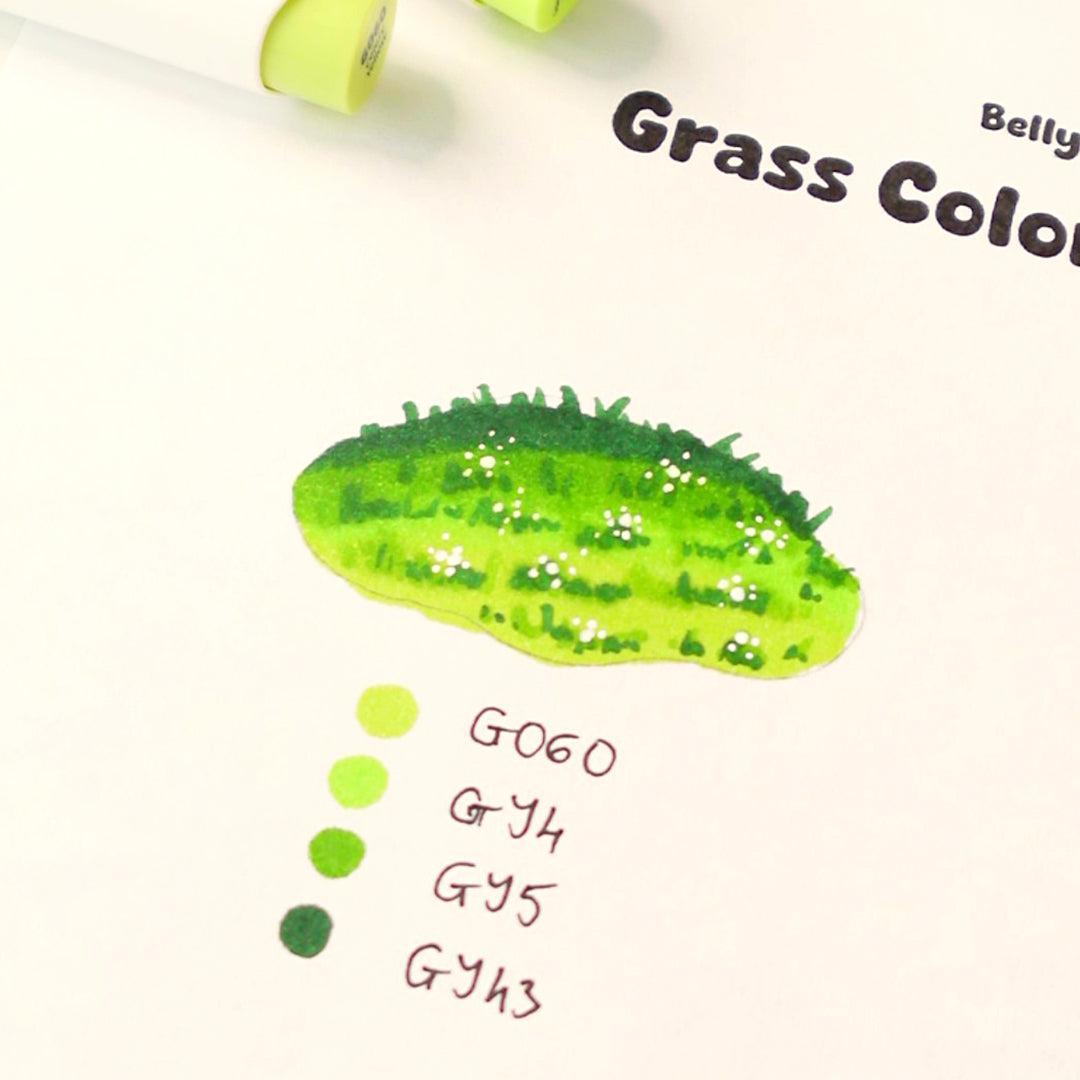 G060
Belly
Grass Color
G060
GY4
GY5
GY43